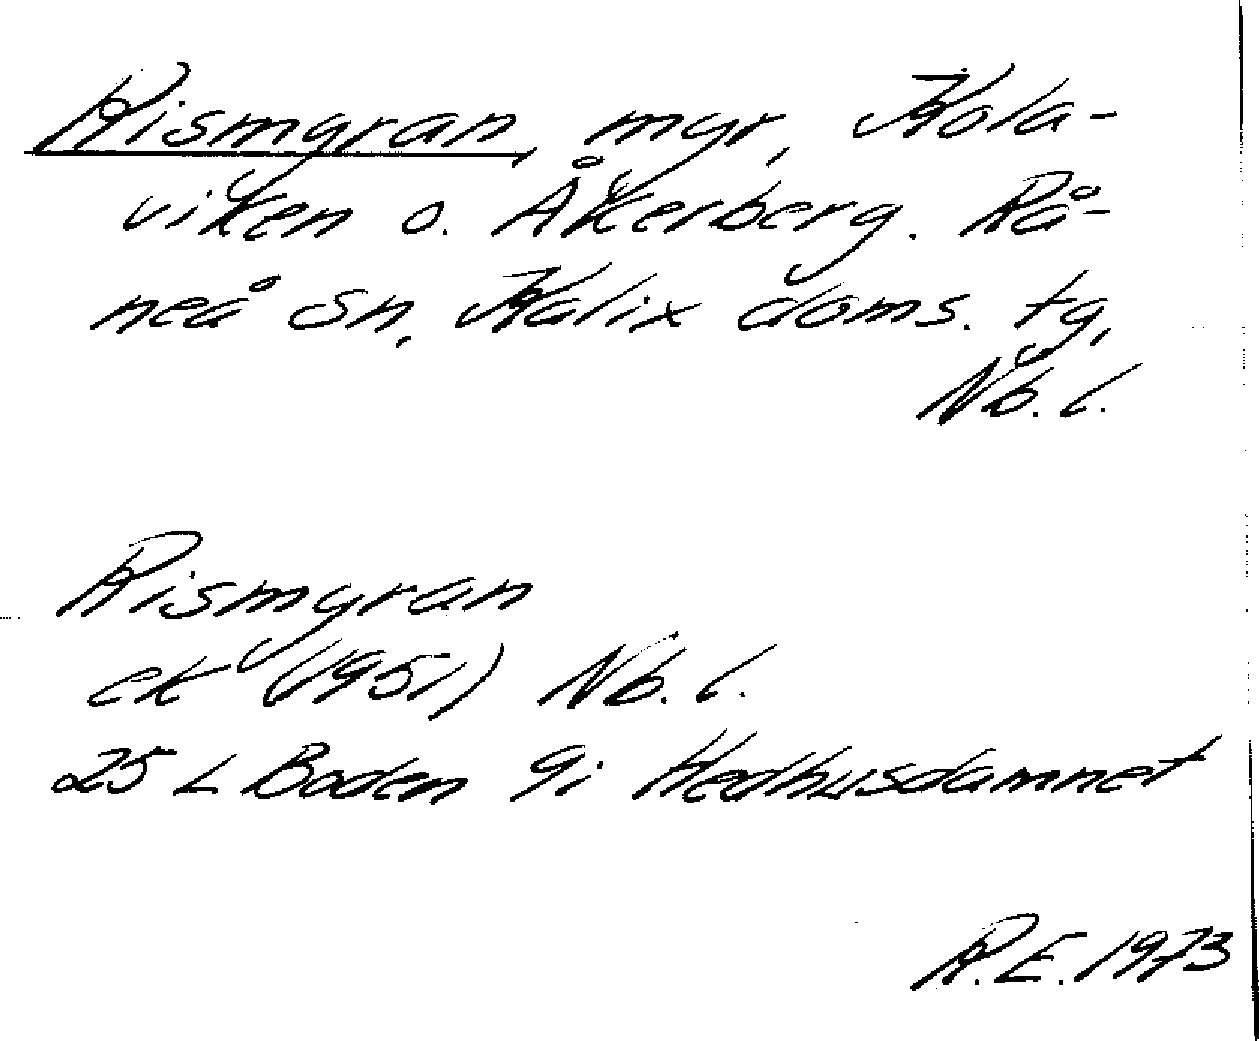 Rismyran, myr, Kola-
viken o. Åkerberg. Rå-
neå sn, Kalix doms. tg,
Nb. l.
Rismyran
ek (1951) Nb. l.
25 L Boden 9i Hedhusdamnet
R.E. 1973